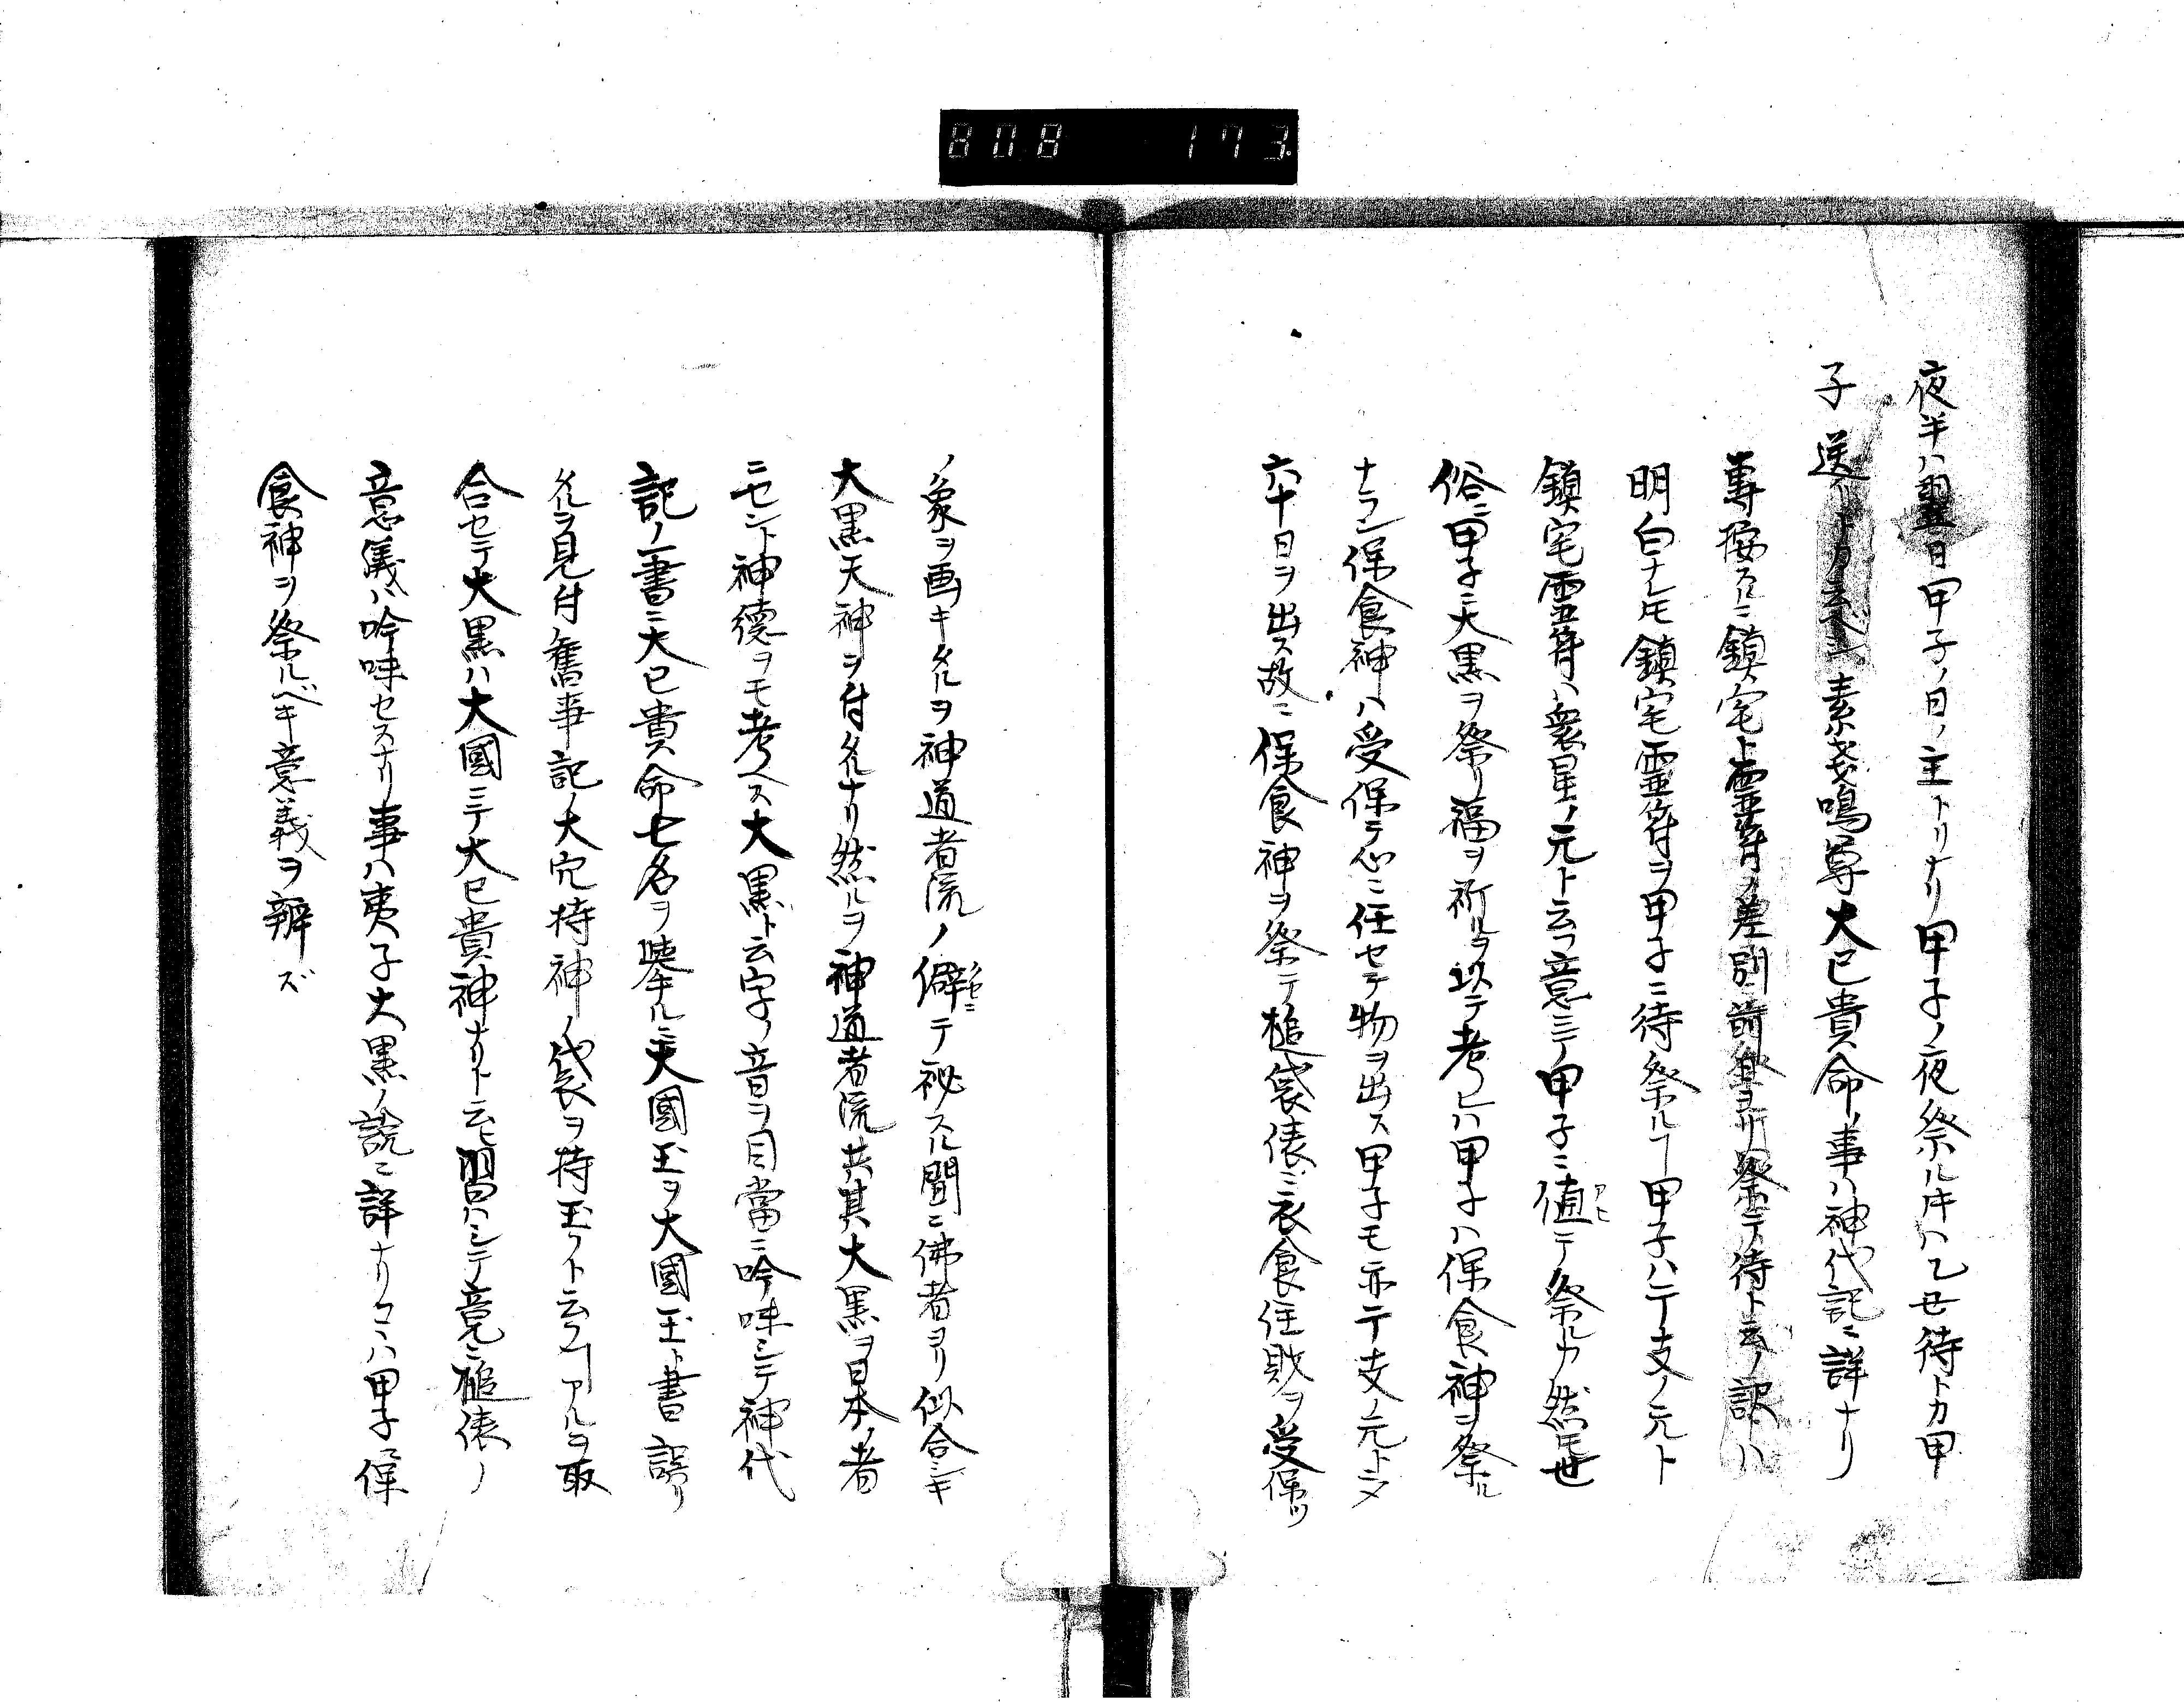 808 173
夜半ハ翌日甲子ノ日ノ主トリナリ甲子ノ夜祭ル時ハ乙丑待トカ甲
子送リトカ云ベシ素戔嗚尊大已貴命ノ事ハ神代記ニ詳ナリ
專按スルニ鎮宅ト霊符ノ差別前
祭テ待ト云ノ訳ハ
明白ナレモ鎮宅霊符ヲ甲子ニ待祭ルヿ甲子ハ干支ノ元ト
鎮宅霊符ハ衆星ノ元ト云フ意ニテ甲子ニ値テ祭ルカ然モ世
俗ニ甲子ニ大黒ヲ祭リ福ヲ祈ルヲ以テ考レハ甲子ハ保食神ヲ祭ル
ナラン保食神ハ受保テ心ニ任セテ物ヲ出ス甲子モ亦干支ノ元トシテ
六十日ヲ出ス故ニ保食神ヲ祭テ槌袋俵ニ衣食住財ヲ受保ツ
ノ象ヲ画キタルヲ神道者流ノ僻テ秘スル間ニ佛者ヨリ似合シキ
大黒天神ヲ付タルナリ然ルヲ神道者流共其大黒ヲ日本ノ者
ニセント神德ヲモ考ヘス大黒ト云字ノ音ヲ目當ニ吟味シテ神代
記ノ一書ニ大已貴命七名ヲ擧ルニ大國玉ヲ大國玉ト書誤リ
タルヲ見付舊事記ノ大穴持神ノ袋ヲ持玉フト云フヿアルヲ取
合セテ大黒ハ大國ニテ大已貴神ナリト云ヒ習ハシテ竟ニ槌俵ノ
意儀ハ吟味セスナリ事ハ夷子大黒ノ説ニ詳ナリコヽハ甲子保
食神ヲ祭ルベキ意義ヲ辨ズ